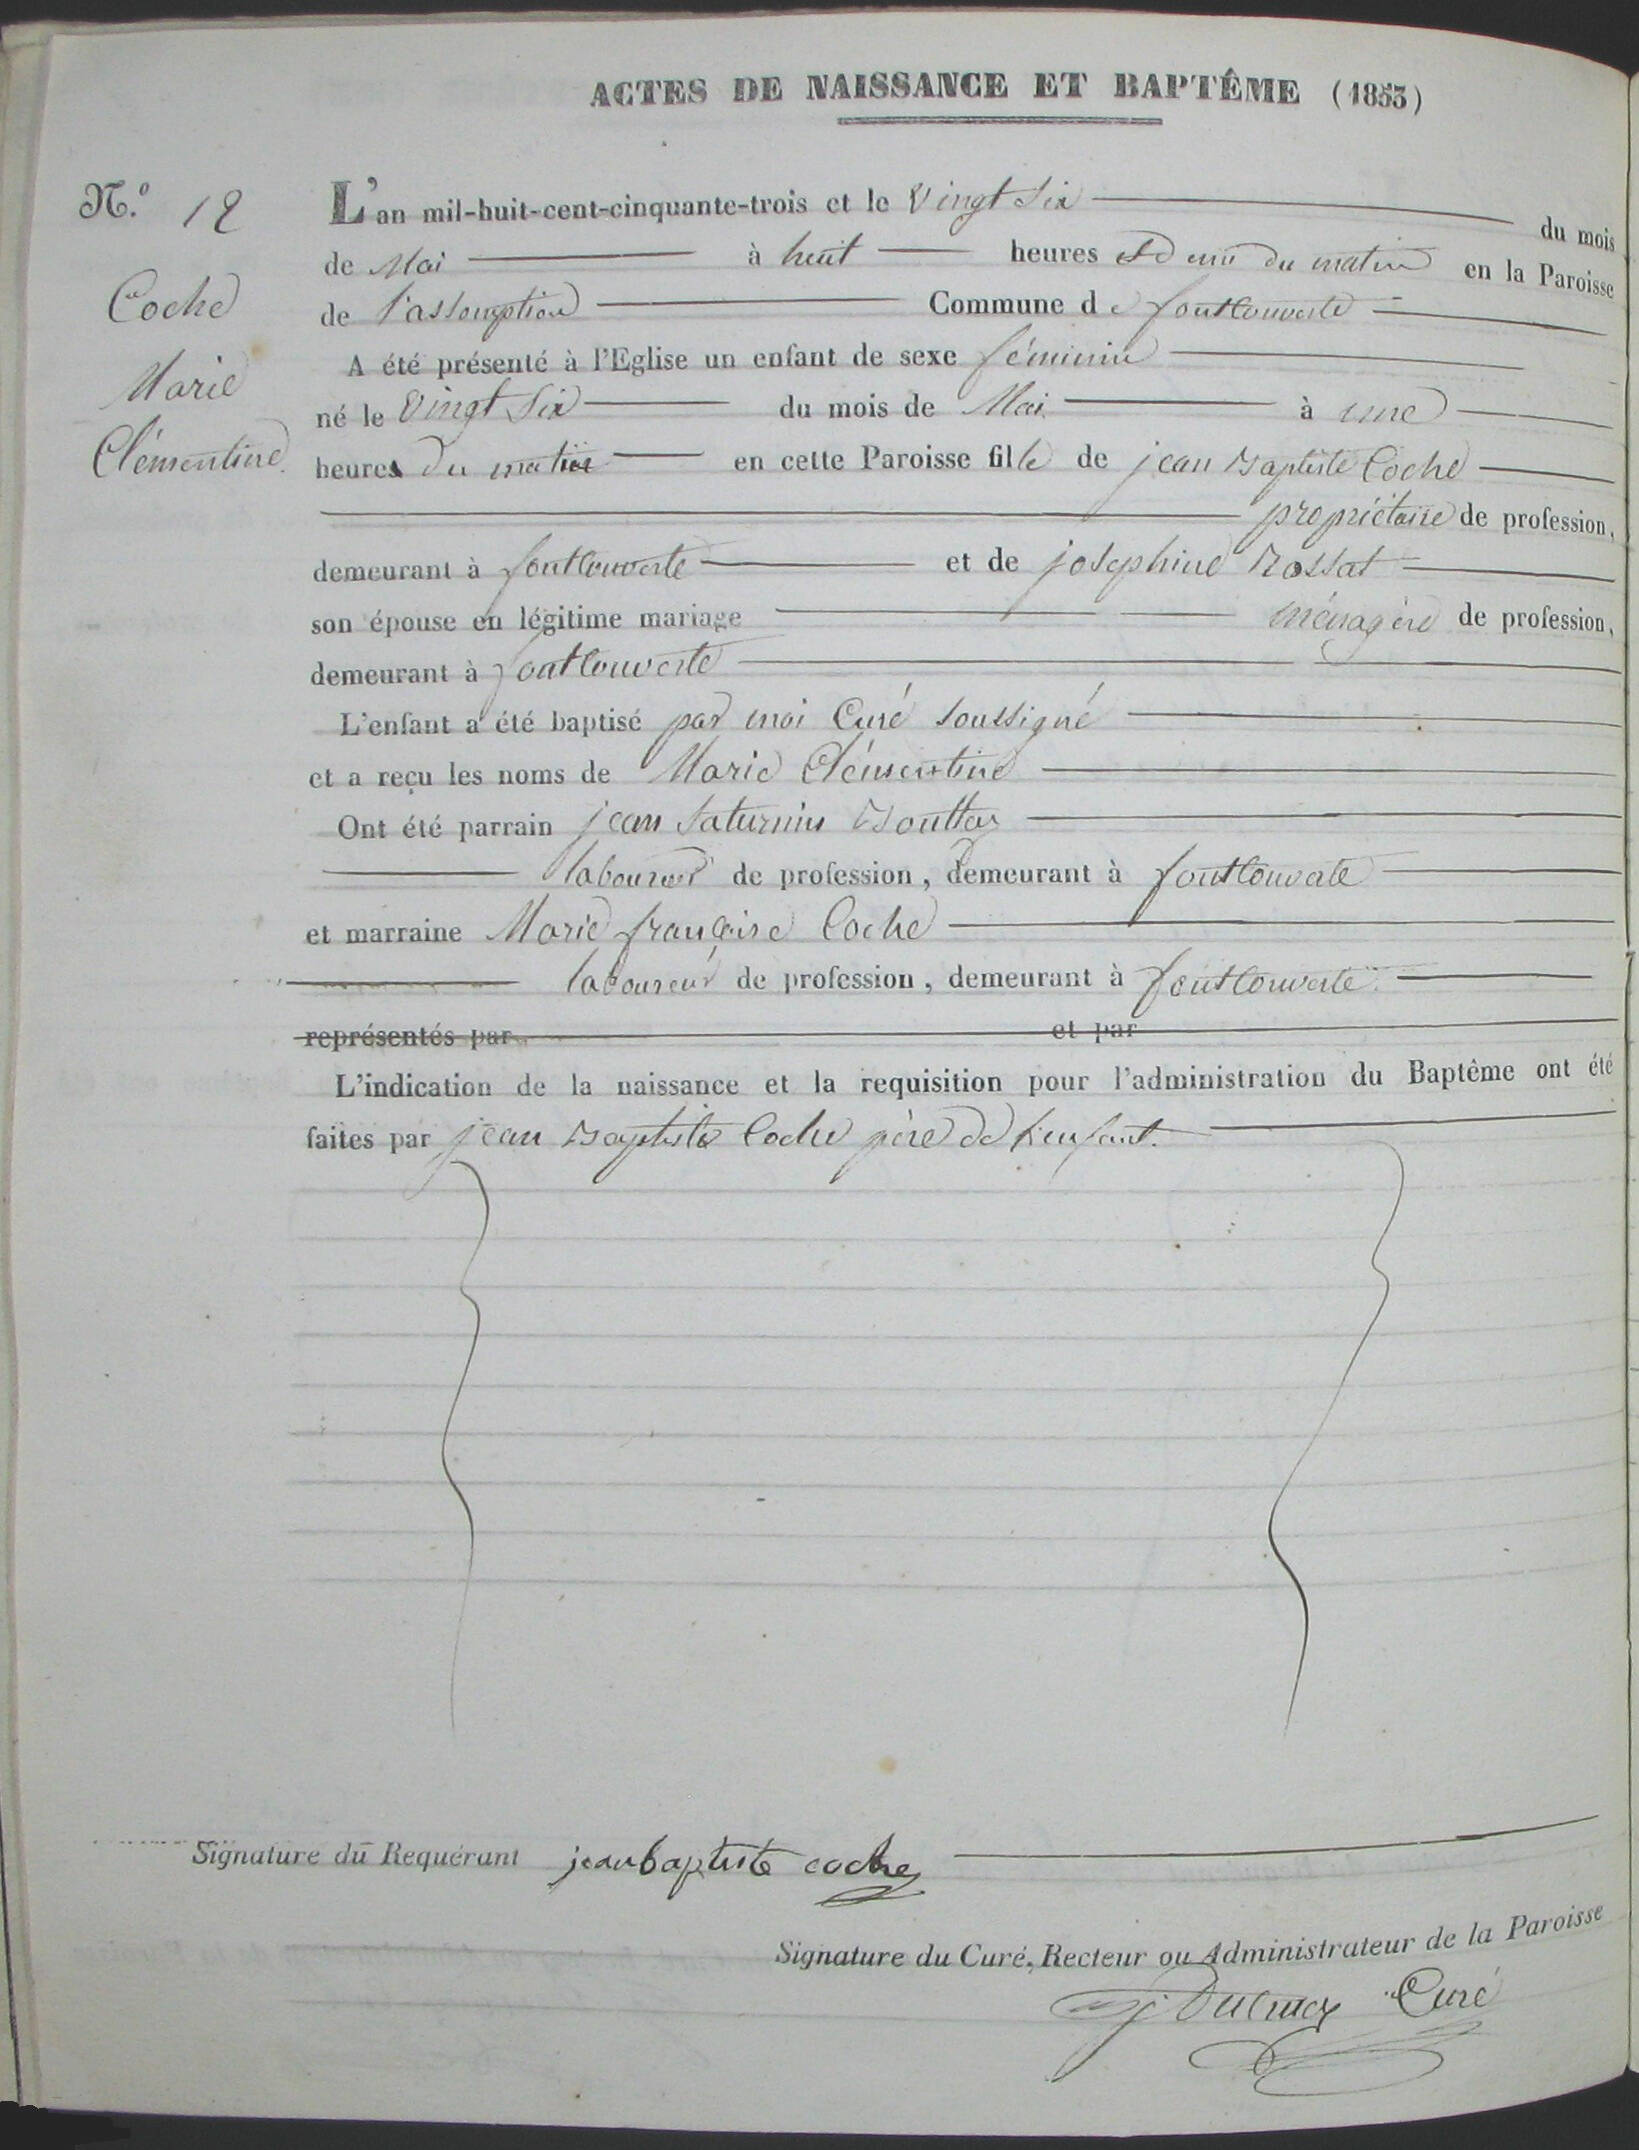 ACTES DE NAISSANCE ET BAPTÊME (1853)
N.º 12
Coche
Marie
Clémentine
L'an mil-huit-cent-cinquante-trois et le vingt six du mois
de Mai à huit heures du matin en la Paroisse
de l'assomption Commune de fontcouverte
A été présenté à l'Eglise un enfant de sexe féminin
né le vingt six du mois de Mai à une
heures du matin en cette Paroisse fille de jean Baptiste Coche
propriétaire de profession,
demeurant à fontcouverte et de josephine Rossat
son épouse en légitime mariage ménagère de profession,
demeurant à fontcouverte
L'enfant a été baptisé par moi Curé soussigné
et a reçu les noms de Marie Clémentine
Ont été parrain jean Saturnin Bouttaz
laboureur de profession, demeurant à fontcouverte
et marraine Marie françoise Coche
laboureur de profession, demeurant à fontcouverte
représentés par et par
L'indication de la naissance et la requisition pour l'administration du Baptême ont été
faites par jean Baptiste Coche père de l'enfant.
Signature du Requérant jean baptiste coche
Signature du Curé, Recteur ou Administrateur de la Paroisse
Curé